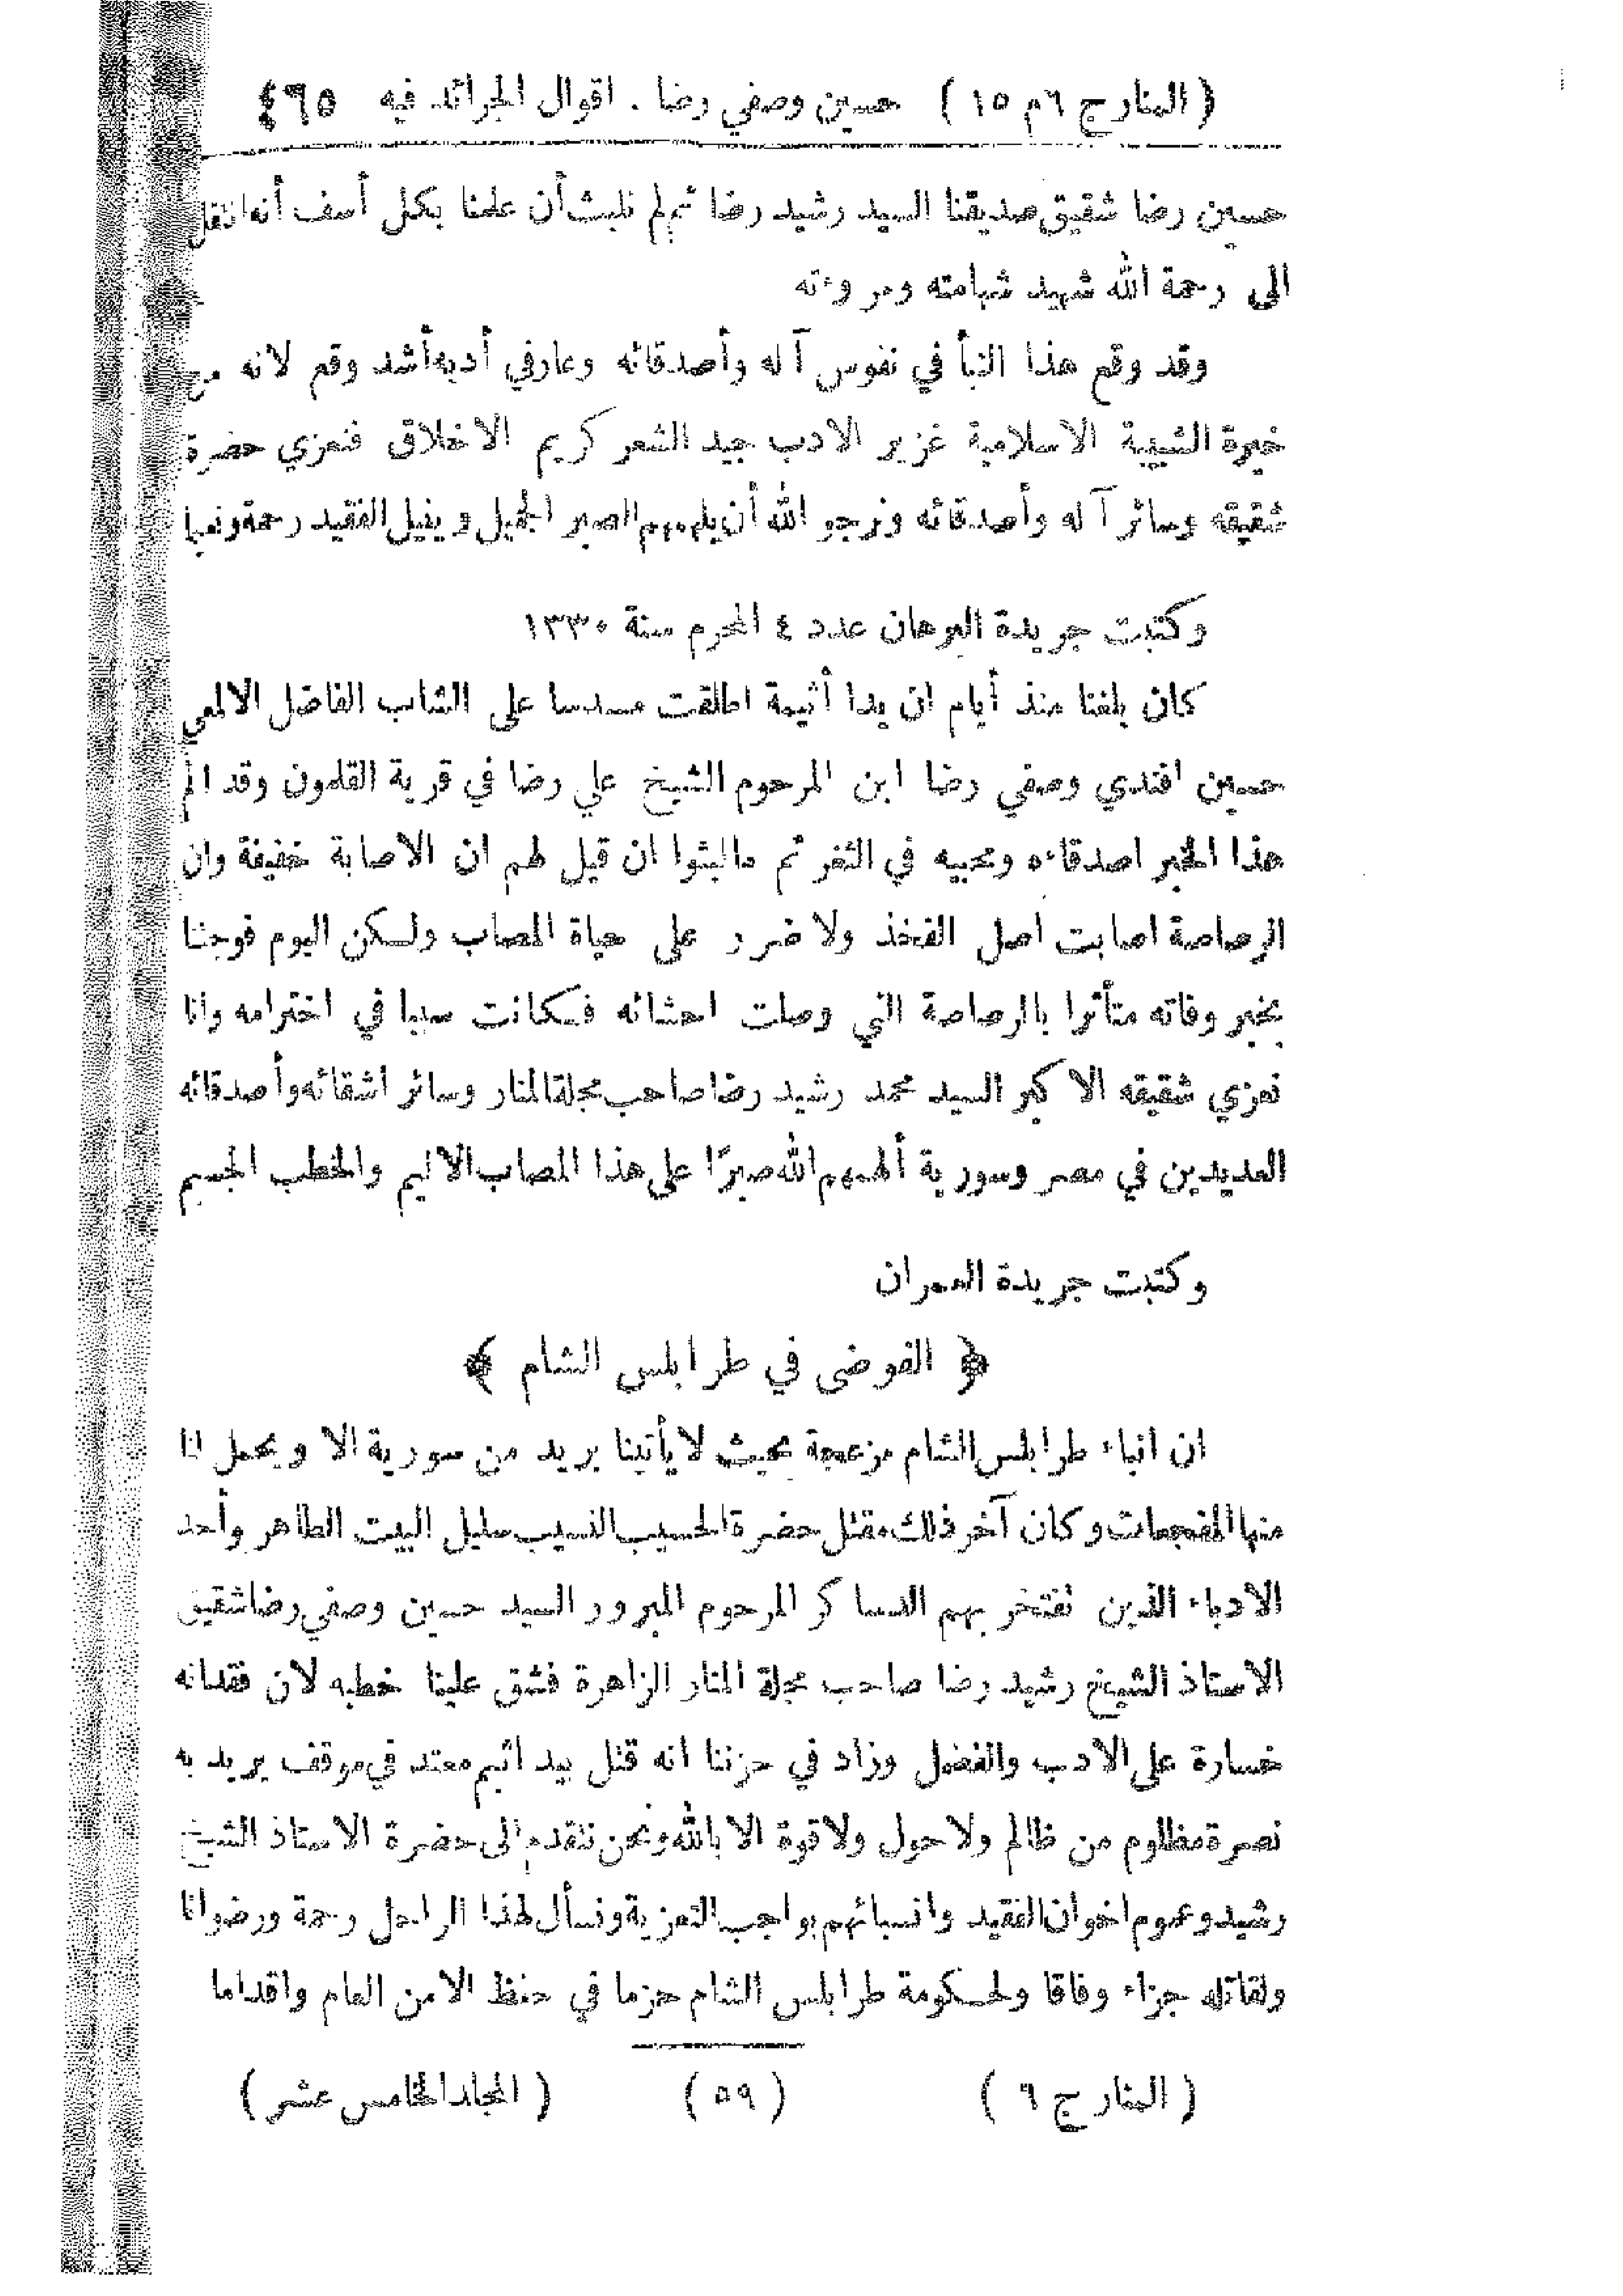 ( المنار ج ٦ م ١٥ ) حسين وصفي رضا . اقوال الجرائد فيه ٤٦٥
حسين رضا شقيق صديقنا السيد رشيد رضا ثم لم نلبث أن علمنا بكل أسف أنه انتقل
الى رحمة الله شهيد شهامته ومروءته
وقد وقع هذا النبأ في نفوس آله وأصدقائه وعارفي أدبه أشد وقع لانه من
خيرة الشبيبة الاسلامية غزير الادب جيد الشعر كريم الاخلاق فنعزي حضرة
شقيقه وسائر آله وأصدقائه ونرجو الله أن يلهمهم الصبر الجميل وينيل الفقيد رحمة ونعيما
وكتبت جريدة البرهان عدد ٤ المحرم سنة ١٣٣٠
كان بلغنا منذ أيام ان يدا أثيمة اطلقت مسدسا على الشاب الفاضل الالمعي
حسين افندي وصفي رضا ابن المرحوم الشيخ علي رضا في قرية القلمون وقد الم
هذا الخبر اصدقاءه ومحبيه في الثغر ثم ما لبثوا ان قيل لهم ان الاصابة خفيفة وان
الرصاصة اصابت اصل الفخذ ولا ضرر على حياة المصاب ولكن اليوم فوجئنا
بخبر وفاته متأثرا بالرصاصة التي وصلت احشائه فكانت سببا في اخترامه وانا
نعزي شقيقه الاكبر السيد محمد رشيد رضا صاحب مجلة المنار وسائر اشقائه وأصدقائه
العديدين في مصر وسورية ألهمهم الله صبرًا على هذا المصاب الاليم والخطب الجسيم
وكتبت جريدة العمران
﴿ الفوضى في طرابلس الشام ﴾
ان انباء طرابلس الشام مزعجة بحيث لا يأتينا بريد من سورية الا ويحمل لنا
منها المفجعات وكان آخر ذلك مقتل حضرة الحسيب النسيب سليل البيت الطاهر وأحد
الادباء الذين تفتخر بهم الدساكر المرحوم المبرور السيد حسين وصفي رضا شقيق
الاستاذ الشيخ رشيد رضا صاحب مجلة المنار الزاهرة فشق علينا خطبه لان فقدانه
خسارة على الادب والفضل وزاد في حزننا انه قتل بيد اثيم معتد في موقف يريد به
نصرة مظلوم من ظالم ولا حول ولا قوة الا بالله ونحن نتقدم الى حضرة الاستاذ الشيخ
رشيد وعموم اخوان الفقيد وانسبائهم بواجب التعزية ونسأل لهذا الراحل رحمة ورضوانا
ولقاتله جزاء وفاقا ولحكومة طرابلس الشام حزما في حفظ الامن العام واقداما
( المنار ج ٦ ) ( ٥٩ ) ( المجلد الخامس عشر )